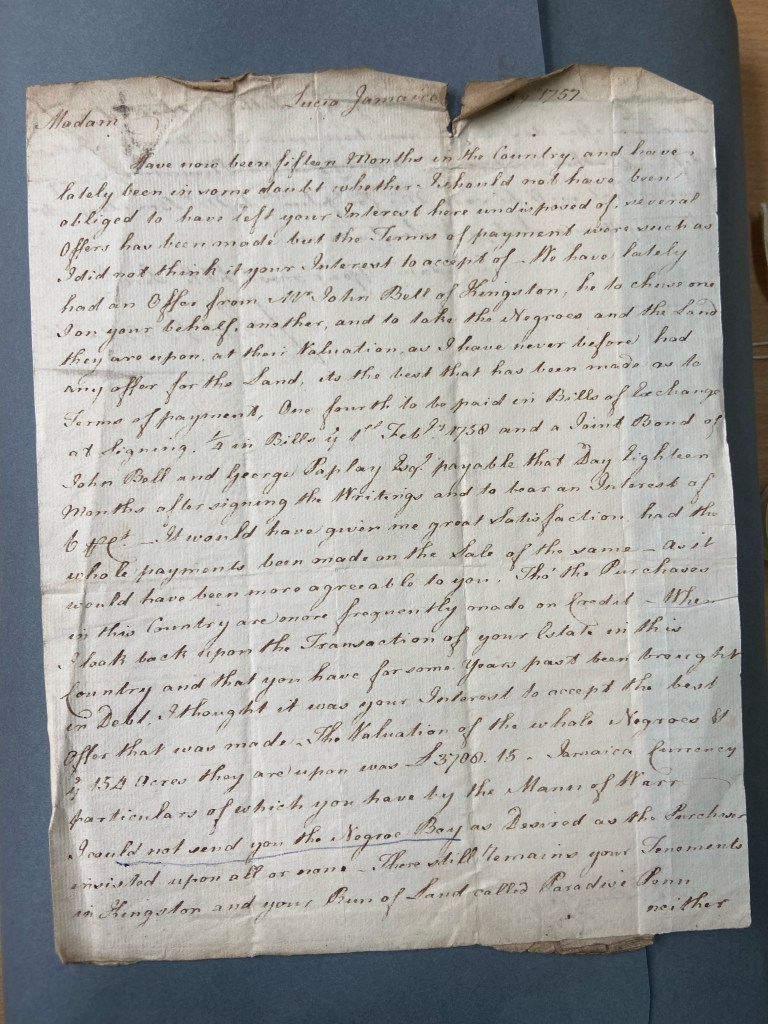 Lucia Jamaica 1757
Madam
Have now been fifteen Months in the Country, and have
lately been in some doubt whether I should not have been
obliged to have left your Interest here undisposed of, several
Offers has been made but the Terms of payment were such as
I did not think it your Interest to accept of - We have lately
had an Offer from Mr John Bell of Kingston, he to chuse one
I on your behalf, another, and to take the Negroes and the Land
they are upon, at their Valuation, as I have never before had
any offer for the Land, its the best that has been made as to
Terms of payment, One fourth to be paid in Bills of Exchange
at Signing, 1/4 in Bills ye 1st Febry 1758 and a Joint Bond of
John Bell and George Paplay Esqr payable that Day Eighteen
Months after signing the Writings and to bear an Interest of
6 pCt - It would have given me great Satisfaction had the
whole payments been made on the Sale of the same - as it
would have been more agreeable to you, Tho' the Purchases
in this Country are more frequently made on Credit - When
I look back upon the Transaction of your Estate in this
Country and that you have for some Years past been brought
in Debt, I thought it was your Interest to accept the best
Offer that was made - The Valuation of the whole Negroes &
ye 154 Acres they are upon was £3708.15 - Jamaica Currency
particulars of which you have by the Mann of Warr
I could not send you the Negroe Boy as Desired as the Purchaser
insisted upon all or none - There still remains your Tenements
in Kingston and your Run of Land called Paradise Penn
neither